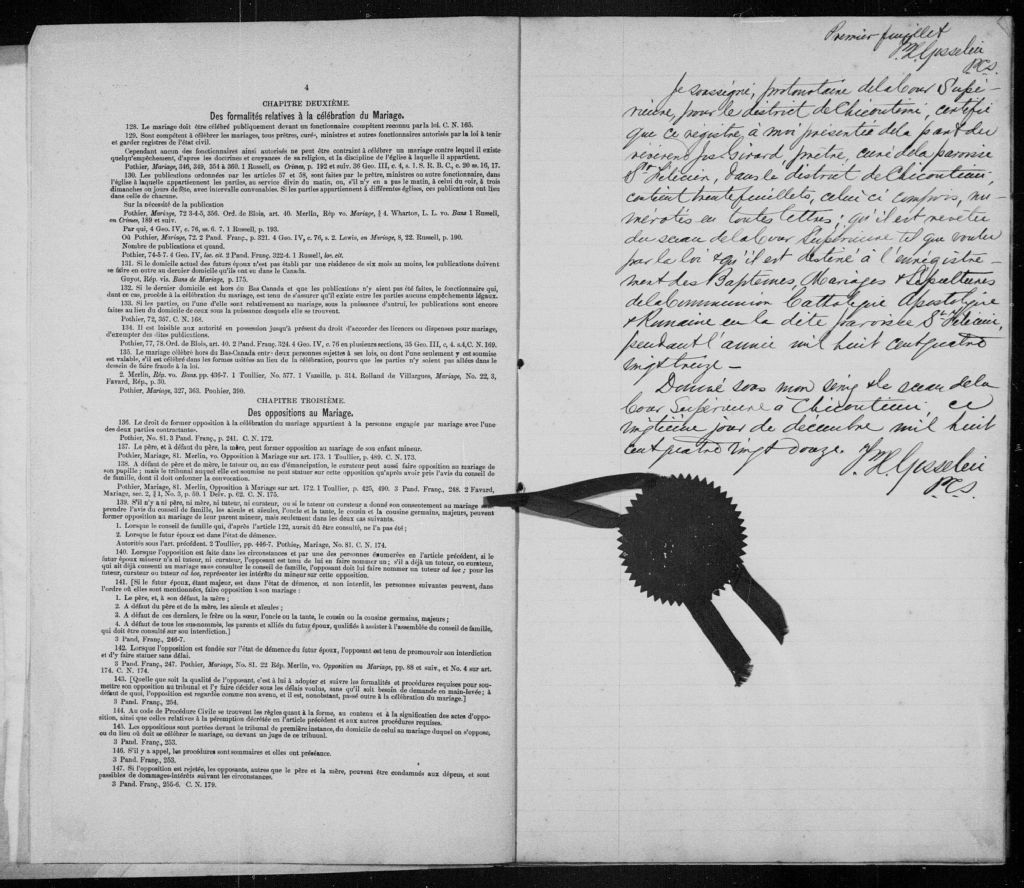 4
CHAPITRE DEUXIÈME.
Des formalités relatives à la célébration du Mariage.
128. Le mariage doit être célébré publiquement devant un fonctionnaire compétent reconnu par la loi. C. N. 165.
129. Sont compétents à célébrer les mariages, tous prêtres, curés, ministres et autres fonctionnaires autorisés par la loi à tenir
et garder registres de l'état civil.
Cependant aucun des fonctionnaires ainsi autorisés ne peut être contraint à célébrer un mariage contre lequel il existe
quelqu'empêchement, d'après les doctrines et croyances de sa religion, et la discipline de l'église à laquelle il appartient.
Pothier, Mariage, 346, 349, 354 à 360. 1 Russell, on Crimes, p. 192 et suiv. 36 Geo. III, c. 4, s. 1. S. R. B. C., c. 20 ss. 16, 17.
130. Les publications ordonnées par les articles 57 et 58, sont faites par le prêtre, ministres ou autre fonctionnaire, dans
l'église à laquelle appartiennent les parties, au service divin du matin, ou, s'il n'y en a pas le matin, à celui du soir, à trois
dimanches ou jours de fête, avec intervalle convenables. Si les parties appartiennent à différentes églises, ces publications ont lieu
dans celle de chacune.
Sur la nécessité de la publication
Pothier, Mariage, 72 3-4-5, 356. Ord. de Blois, art. 40. Merlin, Rép vo. Mariage, § 4. Wharton, L. L. vo. Bans 1 Russell,
on Crimes, 189 et suiv.
Par qui, 4 Geo. IV, c. 76, ss. 6. 7. 1 Russell, p. 193.
Où Pothier, Mariage, 72. 2 Pand. Franç., p. 321. 4 Geo. IV, c. 76, s. 2. Lewis, on Mariage, 8, 22. Russell, p. 190.
Nombre de publications et quand.
Pothier, 74-5 7. 4 Geo. IV, loc. cit. 2 Pand. Franç. 322-4. 1 Russell, loc. cit.
131. Si le domicile actuel des futurs époux n'est pas établi par une résidence de six mois au moins, les publications doivent
se faire en outre au dernier domicile qu'ils ont eu dans le Canada.
Guyot, Rép. vis. Bans de Mariage, p. 175.
132. Si le dernier domicile est hors du Bas Canada et que les publications n'y aient pas été faites, le fonctionnaire qui,
dans ce cas, procède à la célébration du mariage, est tenu de s'assurer qu'il existe entre les parties aucuns empêchements légaux.
133. Si les parties, ou l'une d'elle sont relativement au mariage, sous la puissance d'autrui, les publications sont encore
faites au lieu du domicile de ceux sous la puissance desquels elle se trouvent.
Pothier, 72, 357. C. N. 168.
134. Il est loisible aux autorité en possession jusqu'à présent du droit d'accorder des licences ou dispenses pour mariage,
d'exempter des dites publications.
Pothier, 77, 78. Ord. de Blois, art. 40. 2 Pand Franç. 324. 4 Geo. IV, c. 76 en plusieurs sections, 35 Geo. III, c, 4. s.4, C. N. 169.
135. Le mariage célébré hors du Bas-Canada entre deux personnes sujettes à ses lois, ou dont l'une seulement y est soumise
est valable, s'il est célébré dans les formes usitées au lieu de la célébration, pourvu que les parties n'y soient pas allées dans le
dessein de faire fraude à la loi.
2. Merlin, Rép. vo. Bans. pp. 436-7. 1 Toullier, No. 577. 1 Vazeille, p. 314. Rolland de Villargues, Mariage, No. 22, 3,
Favard, Rép., p. 30.
Pothier, Mariage, 327, 363. Pouhier, 390.
CHAPITRE TROISIÈME.
Des oppositions au Mariage.
136. Le droit de former opposition à la célébration du mariage appartient à la personne engagée par mariage avec l'une
des deux parties contractantes.
Pothier, No. 81. 3 Pand. Franç., p. 241. C. N. 172.
137. Le père, et à défaut du père, la mère, peut former opposition au mariage de son enfant mineur.
Pothier, Mariage, 81. Merlin, vo. Opposition à Mariage sur art. 173. 1 Toullier, p. 489. C. N. 173.
138. A défaut de père et de mère, le tuteur ou, au cas d'émancipation, le curateur peut aussi faire opposition au mariage de
son pupille; mais le tribunal auquel elle est soumise ne peut statuer sur cette opposition qu'après avoir pris l'avis du conseil de
famille, dont il doit ordonner la convocation.
Pothier, Mariage, 81. Merlin, Opposition à Mariage sur art. 172. 1 Toullier, p. 425, 490. 3 Pand. Franç., 248. 2 Favard,
Mariage, sec. 2, § 1, No. 3, p. 59. 1 Delv. p. 62. C. N. 175.
139. S'il n'y a ni père, ni mère, ni tuteur, ni curateur, ou si le tuteur ou curateur a donné son consentement au mariage sans
prendre l'avis du conseil de famille, les aieuls et aieules, l'oncle et la tante, le cousin et la cousine germains, majeurs, peuvent
former opposition au mariage de leur parent mineur, mais seulement dans les deux cas suivants.
1. Lorsque le conseil de famille qui, d'après l'article 122, aurait dû être consulté, ne l'a pas été;
2. Lorsque le futur époux est dans l'état de démence.
Autorités sous l'art. précédent. 2 Toullier, pp. 446-7. Pothier, Mariage, No. 81, C. N. 174.
140. Lorsque l'opposition est faite dans les circonstances et par une des personnes énumérées en l'article précédent, si le
futur époux mineur n'a ni tuteur, ni curateur, l'opposant est tenu de lui en faire nommer un; s'il a déjà un tuteur, ou curateur,
qui ait déjà consenti au mariage sans consulter le conseil de famille, l'opposant doit lui faire nommer un tuteur ad hoc; pour les
tuteur, curateur ou tuteur ad hoc, représenter les intérêts du mineur sur cette opposition.
141. [Si le futur époux, étant majeur, est dans l'état de démence, et non interdit, les personnes suivantes peuvent, dans
l'ordre où elles sont mentionnées, faire opposition à son mariage:
1. Le père, et, à son défaut, la mère;
2. A défaut du père et de la mère, les aieuls et aieules;
3. A défaut de ces derniers, le frère ou la sœur, l'oncle ou la tante, le cousin ou la cousine germains, majeurs;
4. A défaut de tous les sus-nommés, les parents et alliés du futur époux, qualifiés à assister à l'assemblée du conseil de famille,
qui doit être consulté sur son interdiction.]
3 Pand, Franç., 246-7.
142. Lorsque l'opposition est fondée sur l'état de démence du futur époux, l'opposant est tenu de promouvoir son interdiction
et d'y faire statuer sans délai.
3 Pand. Franç., 247. Pothier, Mariage, No. 81. 22 Rép. Merlin, vo. Opposition au Mariage, pp. 88 et suiv., et No. 4 sur art.
174. C. N. 174.
143. [Quelle que soit la qualité de l'opposant, c'est à lui à adopter et suivre les formalités et procédures requises pour sou-
mettre son opposition au tribunal et l'y faire décider sous les délais voulus, sans qu'il soit besoin de demande en main-levée; à
défaut de quoi, l'opposition est regardée comme non avenue, et il est, nonobstant, passé outre à la célébration du mariage.]
3 Pand. Franç., 254.
144. Au code de Procédure Civile se trouvent les règles quant à la forme, au contenu et à la signification des actes d'oppo-
sition, ainsi que celles relatives à la péremption décrétée en l'article précédent et aux autres procédures requises.
145. Les oppositions sont portées devant le tribunal de première instance, du domicile de celui au mariage duquel on s'oppose,
ou du lieu où doit se célébrer le mariage, ou devant un juge de ce tribunal.
3 Pand. Franç., 253.
146. S'il y a appel, les procédures sont sommaires et elles ont préséance.
3 Pand. Franç., 253.
147. Si l'opposition est rejetée, les opposants, autres que le père et la mère, peuvent être condamnés aux dépens, et sont
passibles de dommages-intérêts suivant les circonstances.
3 Pand. Franç., 255-6. C. N. 179.
Premier feuillet
F. H. Gosselin
P.C.S.
Je soussigné, protonotaire de la Cour Supé-
rieure, pour le district de Chicoutimi, certifie
que ce registre, à moi présentée de la part du
révérend Jos. Girard, prêtre, curé de la paroisse
St Félicien, dans le district de Chicoutimi,
contient trente feuillets, celui ci compris, nu-
mérotés en toutes lettres; qu'il est revêtu
du sceau de la Cour Supérieure tel que voulu
par la loi & qu'il est destiné à l'enregistre-
ment des Baptêmes, Mariages & Sépultures
de la Communion Catholique Apostolique
& Romaine en la dite paroisse St Félicien,
pendant l'année mil huit cent quatre
vingt treize -
Donné sous mon seing & le sceau de la
Cour Supérieure à Chicoutimi, ce
vingtième jour de décembre mil huit
cent quatre vingt douze.
F. H. Gosselin
P.C.S.